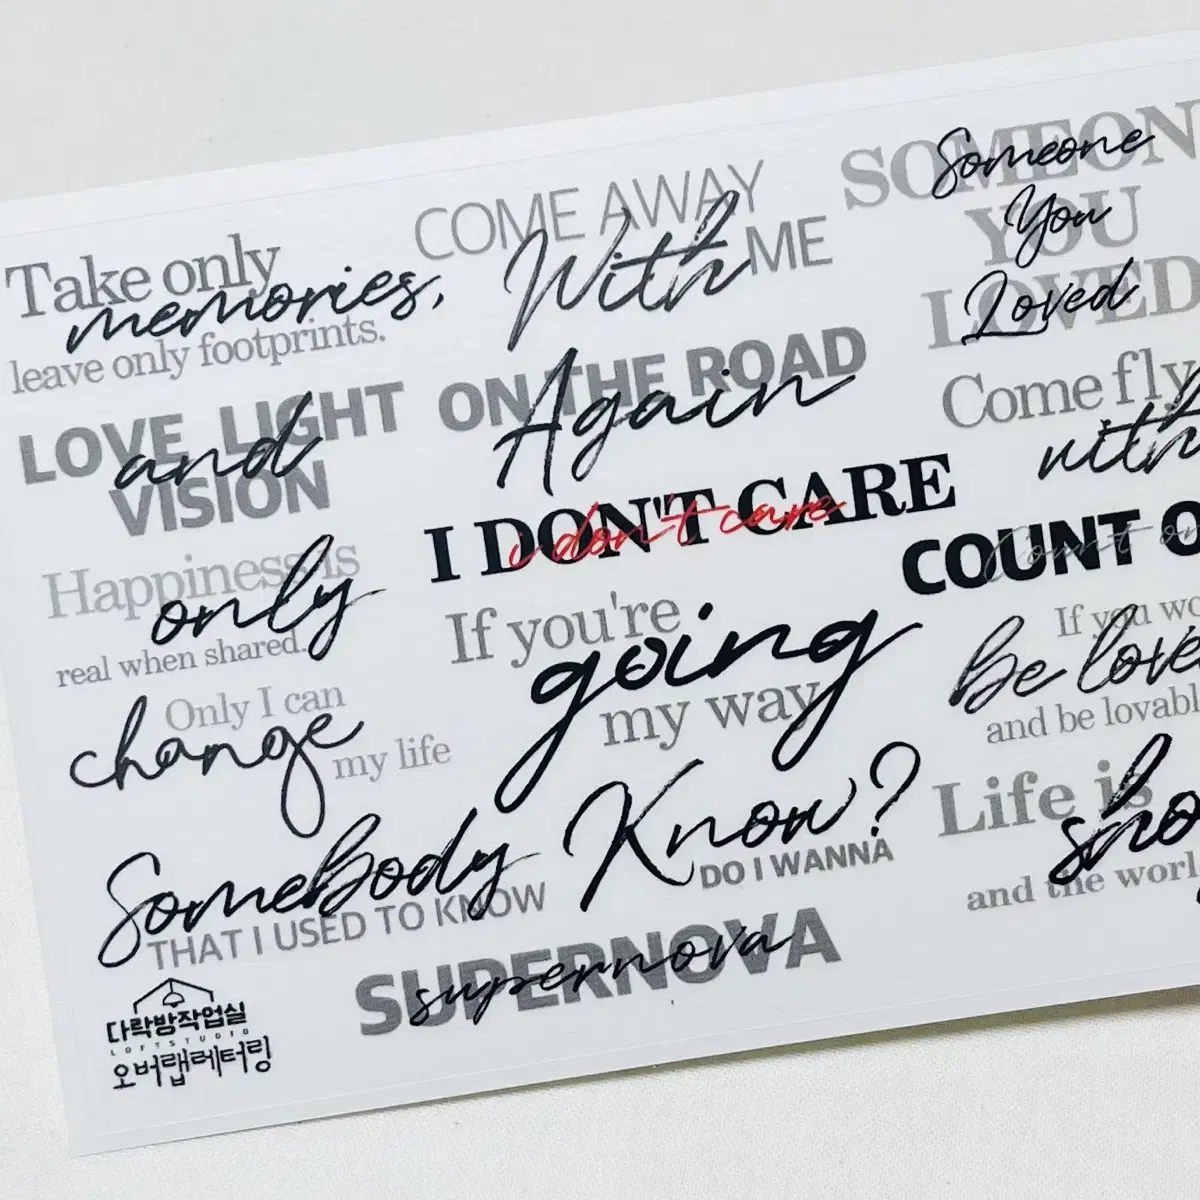 Take only
memories,
leave only footprints.
COME AWAY
With ME
SOMEON
Someone
YOU
You
LOVED
Loved
LOVE LIGHT
and
VISION
ON THE ROAD
Again
Come fly
with
Happiness is
only
real when shared.
I DON'T CARE
i don't care
COUNT O
Count on
If you're
going
my way
If you wo
Be love
and be lovabl
Only I can
change
my life
SomeBody
THAT I USED TO KNOW
Know?
DO I WANNA
Life is
sho
and the worl
SUPERNOVA
supernova
다락방작업실
LOFTSTUDIO
오버랩레터링